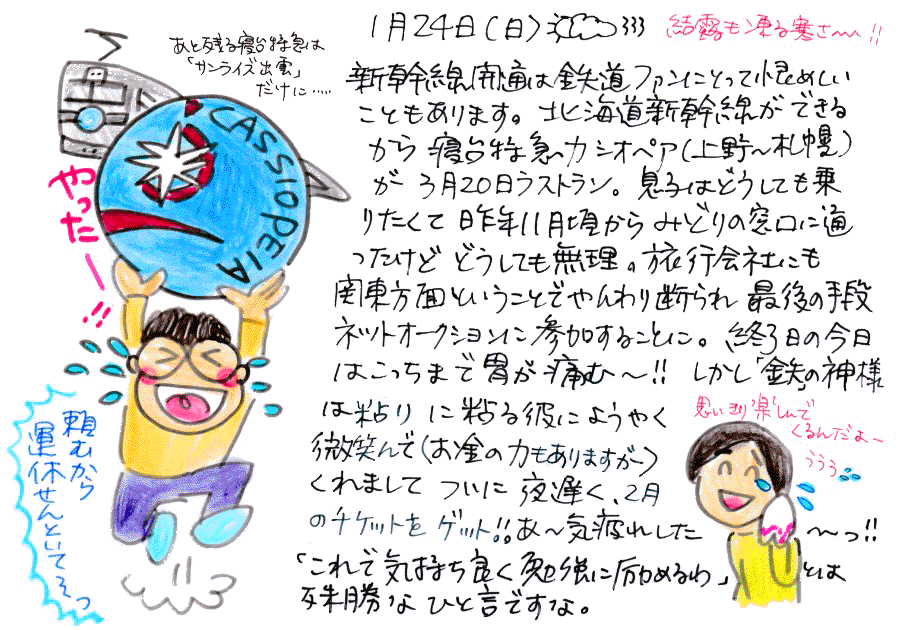 1月24日(日)
結露も凍る寒さ〜〜!!
あと残る寝台特急は
「サンライズ出雲」
だけに……
新幹線開通は鉄道ファンにとって恨めしい
こともあります。北海道新幹線ができる
から寝台特急カシオペア(上野〜札幌)
が3月20日ラストラン。息子はどうしても乗
りたくて昨年11月頃からみどりの窓口に通
ったけどどうしても無理。旅行会社にも
関東方面ということでやんわり断られ最後の手段
ネットオークションに参加することに。終了日の今日
はこっちまで胃が痛む〜!!しかし「鉄」の神様
は粘りに粘る彼にようやく
微笑んで(お金の力もありますが〜)
くれましてついに夜遅く、2月
のチケットをゲット!!あ〜気疲れした〜っ!!
「これで気持ち良く勉強に励めるわ」とは
殊勝なひと言ですな。
CASSIOPEIA
やったー!!
頼むから
運休せんといてろっ
思いきり楽しんで
くるんだよー
ううう